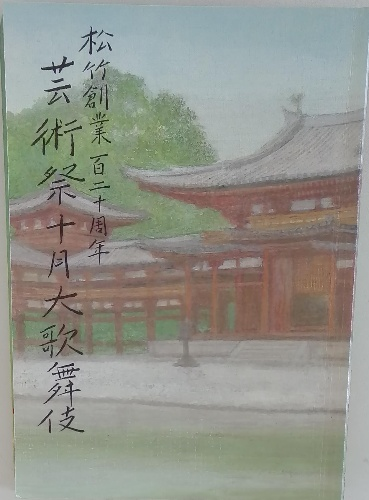 松竹創業 百二十周年
芸術祭十月大歌舞伎